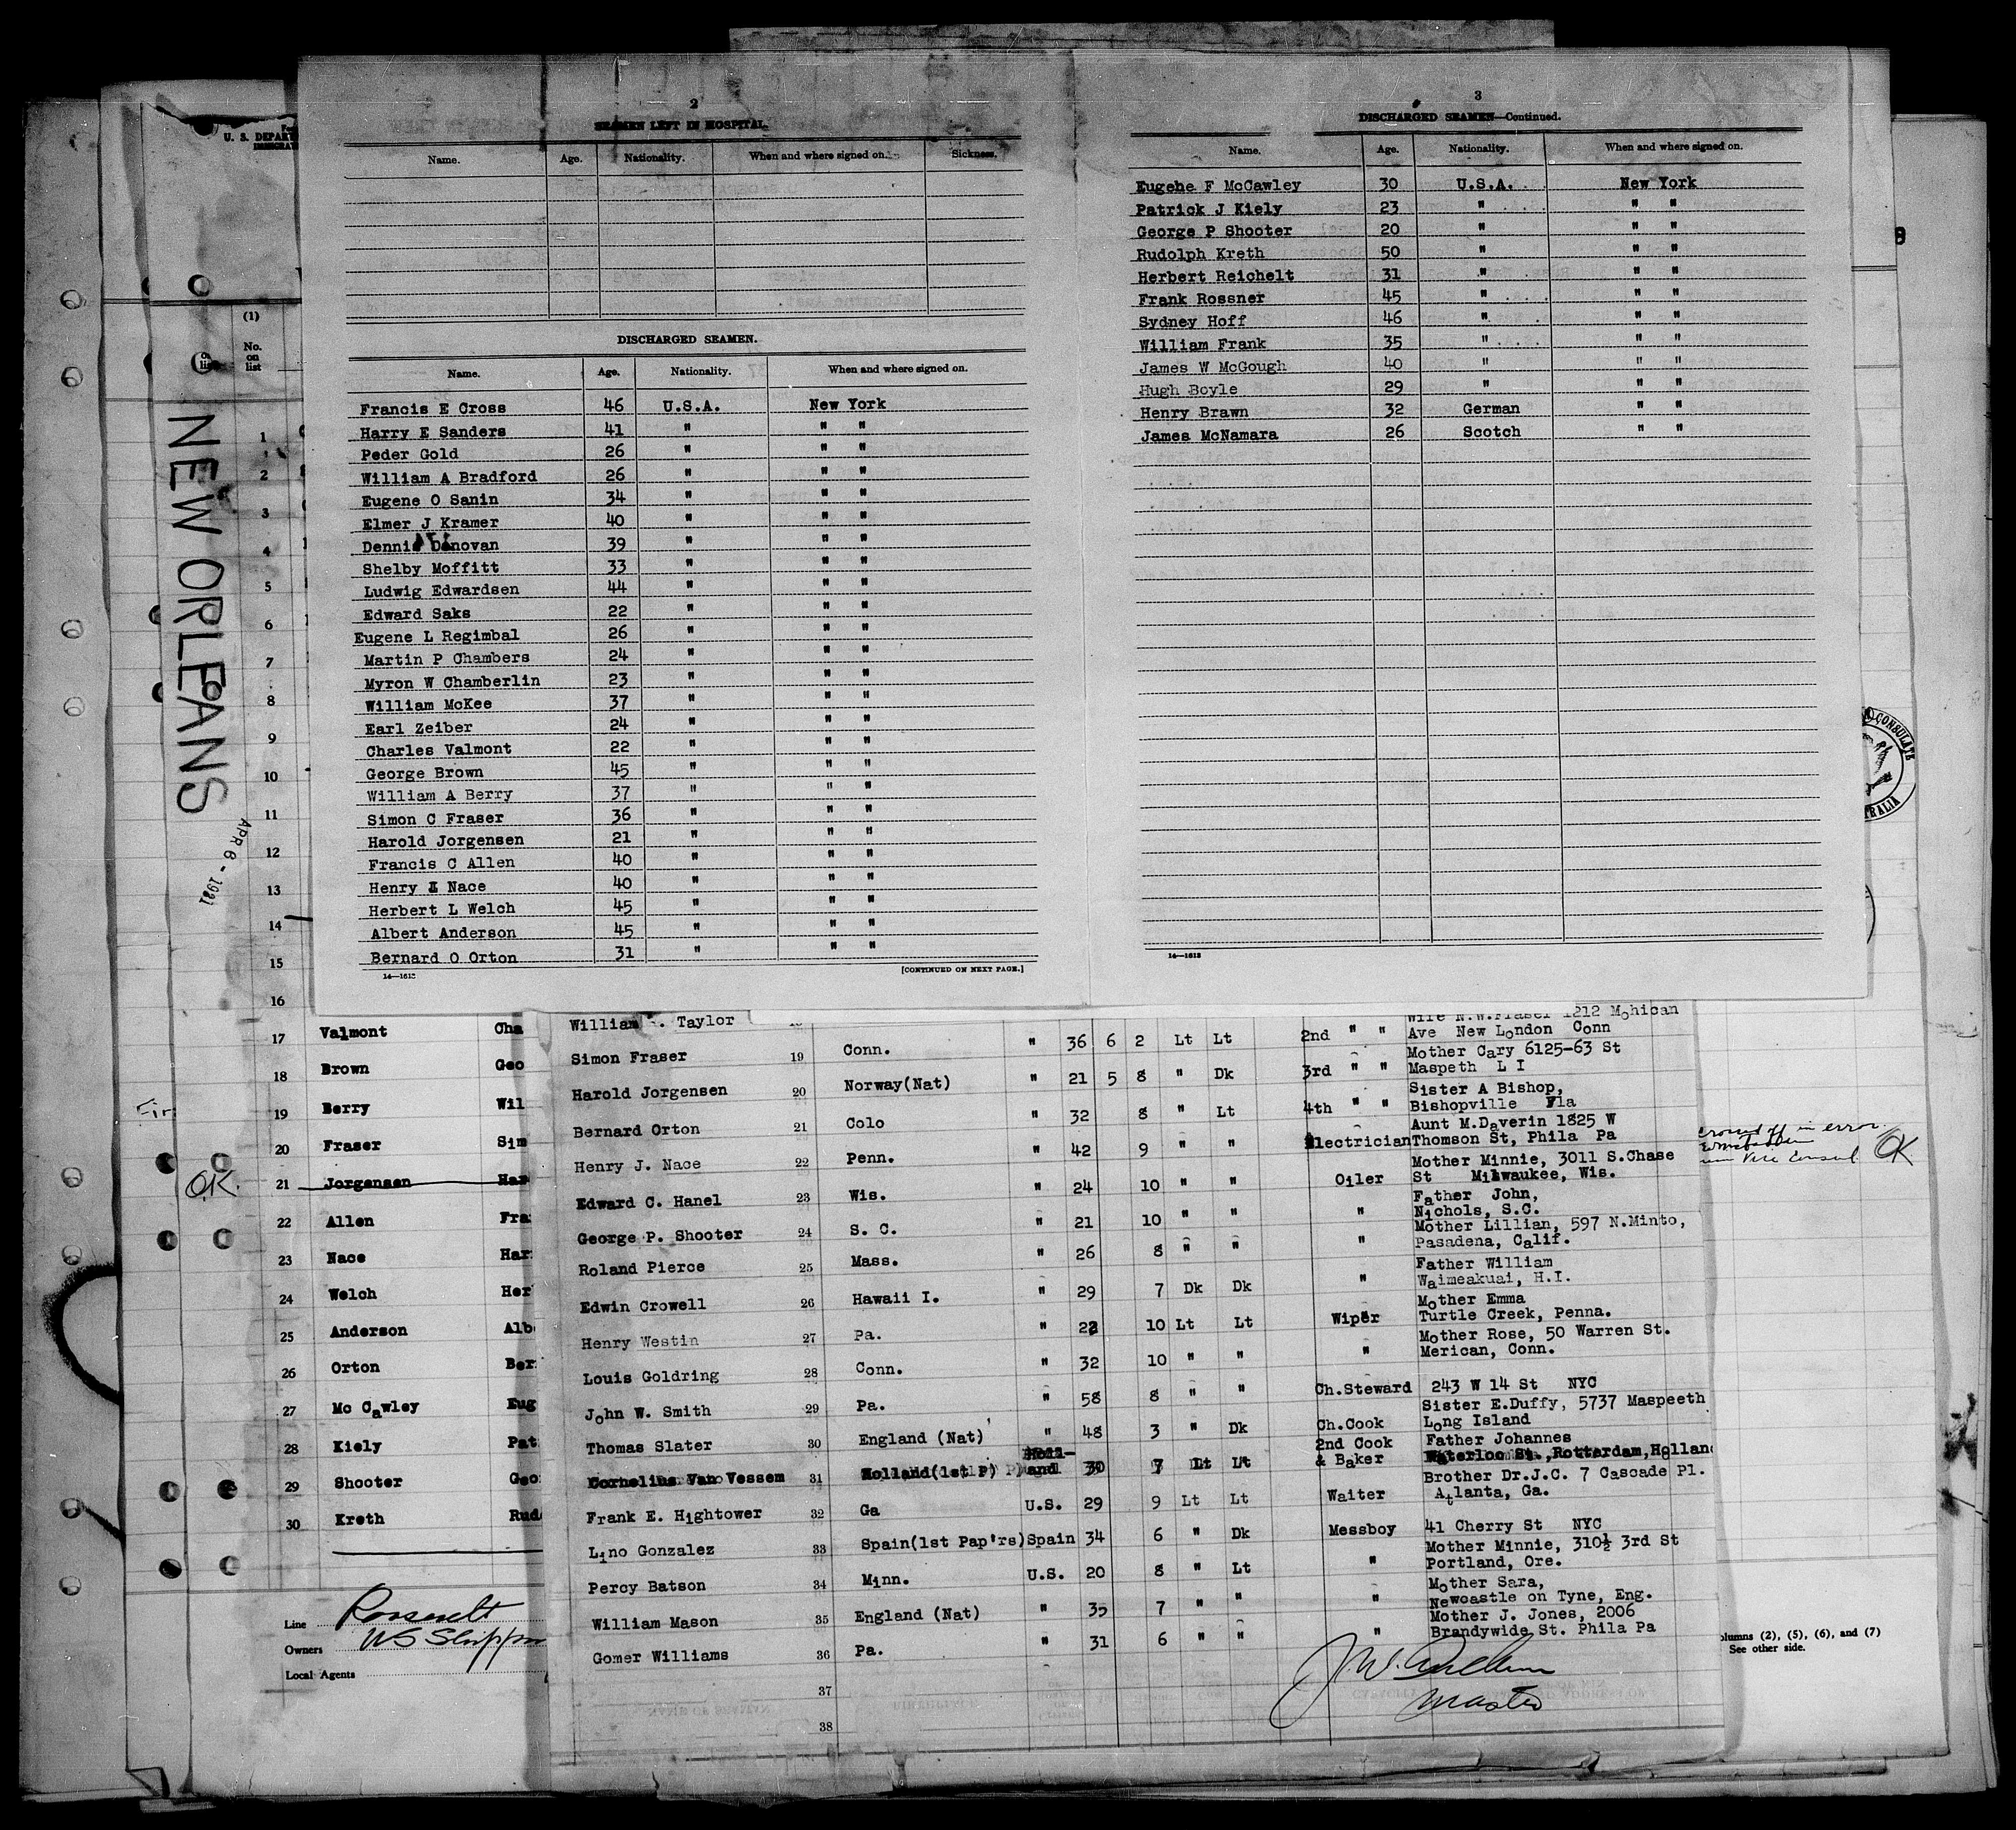 2
SEAMEN LEFT IN HOSPITAL
Name. Age. Nationality. When and where signed on. Sickness.
DISCHARGED SEAMEN.
Name. Age. Nationality. When and where signed on.
Francis E Cross 46 U.S.A. New York
Harry E Sanders 41 " " "
Peder Gold 26 " " "
William A Bradford 26 " " "
Eugene O Sanin 34 " " "
Elmer J Kramer 40 " " "
Dennis Donovan 39 " " "
Shelby Moffitt 33 " " "
Ludwig Edwardsen 44 " " "
Edward Saks 22 " " "
Eugene L Regimbal 26 " " "
Martin P Chambers 24 " " "
Myron W Chamberlin 23 " " "
William McKee 37 " " "
Earl Zeiber 24 " " "
Charles Valmont 22 " " "
George Brown 45 " " "
William A Berry 37 " " "
Simon C Fraser 36 " " "
Harold Jorgensen 21 " " "
Francis C Allen 40 " " "
Henry Nace 40 " " "
Herbert L Welch 45 " " "
Albert Anderson 45 " " "
Bernard O Orton 31 " " "
14—1613
[CONTINUED ON NEXT PAGE.]
3
DISCHARGED SEAMEN—Continued.
Name. Age. Nationality. When and where signed on.
Eugehe F McCawley 30 U.S.A. New York
Patrick J Kiely 23 " " "
George P Shooter 20 " " "
Rudolph Kreth 50 " " "
Herbert Reichelt 31 " " "
Frank Rossner 45 " " "
Sydney Hoff 46 " " "
William Frank 35 " " "
James W McGough 40 " " "
Hugh Boyle 29 " " "
Henry Brawn 32 German " "
James McNamara 26 Scotch " "
14—1613
U. S. DEPART
IMMIGRAT
(1)
No.
on
list
NEW ORLEANS
APR 6 - 1931
1
2
3
4
5
6
7
8
9
10
11
12
13
14
15
16
17 Valmont Cha
18 Brown Geo
19 Berry Wil
20 Fraser Sim
OK. 21 Jorgensen Har
22 Allen Fra
23 Nace Har
24 Welch Her
25 Anderson Alb
26 Orton Ber
27 Mc Cawley Eug
28 Kiely Pat
29 Shooter Geo
30 Kreth Rud
Line Roosevelt
Owners US Shippin
Local Agents
William . Taylor
Wife N.W.Fraser 1212 Mohican
Simon Fraser 19 Conn. " 36 6 2 Lt Lt 2nd " " Ave New London Conn
Mother Cary 6125-63 St
Harold Jorgensen 20 Norway(Nat) " 21 5 8 " Dk 3rd " " Maspeth L I
Sister A Bishop,
Bernard Orton 21 Colo " 32 8 " Lt 4th " " Bishopville Fla
Aunt M.Daverin 1825 W
Henry J. Nace 22 Penn. " 42 9 " " Electrician Thomson St, Phila Pa
Mother Minnie, 3011 S.Chase
Edward C. Hanel 23 Wis. " 24 10 " " Oiler St Milwaukee, Wis.
Father John,
George P. Shooter 24 S. C. " 21 10 " " " Nichols, S.C.
Mother Lillian, 597 N.Minto,
Roland Pierce 25 Mass. " 26 8 " " " Pasadena, Calif.
Father William
Edwin Crowell 26 Hawaii I. " 29 7 Dk Dk " Waimeakuai, H.I.
Mother Emma
Henry Westin 27 Pa. " 22 10 Lt Lt Wiper Turtle Creek, Penna.
Mother Rose, 50 Warren St.
Louis Goldring 28 Conn. " 32 10 " " " Merican, Conn.
John W. Smith 29 Pa. " 58 8 " " Ch.Steward 243 W 14 St NYC
Sister E.Duffy, 5737 Maspeeth
Thomas Slater 30 England (Nat) " 48 3 " Dk Ch.Cook Long Island
2nd Cook Father Johannes
Cornelius Van Vessem 31 Holland(1st P) Holl-and 30 7 Lt Lt & Baker Waterloo St., Rotterdam,Holland
Brother Dr.J.C. 7 Cascade Pl.
Frank E. Hightower 32 Ga U.S. 29 9 Lt Lt Waiter Atlanta, Ga.
Lino Gonzalez 33 Spain(1st Pap'rs)Spain 34 6 " Dk Messboy 41 Cherry St NYC
Mother Minnie, 310½ 3rd St
Percy Batson 34 Minn. U.S. 20 8 " Lt " Portland, Ore.
Mother Sara,
William Mason 35 England (Nat) " 35 7 " " " Newcastle on Tyne, Eng.
Mother J. Jones, 2006
Gomer Williams 36 Pa. " 31 6 " " " Brandywide St. Phila Pa
37
38
Master
crossed off in error.
Vice Consul OK
CONSULATE
TRALIA
olumns (2), (5), (6), and (7)
See other side.